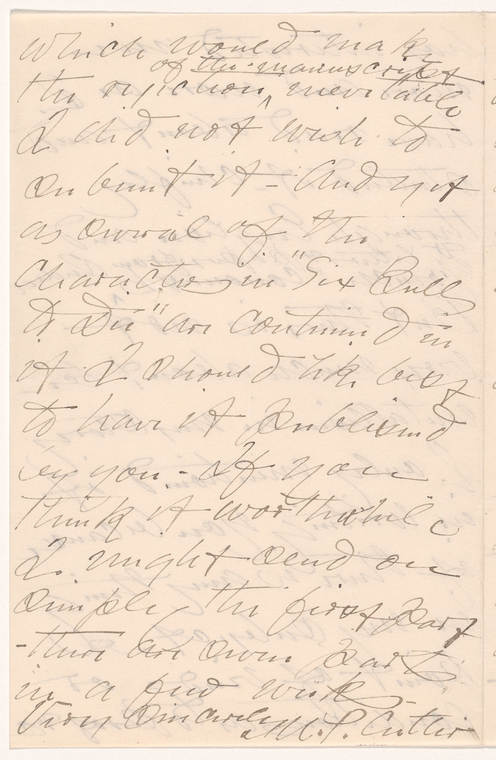 which would make
of the manuscript
the rejection ^ inevitable
I did not wish to
submit it - And yet
as several of the
characters in "Six Bulls
to Die" are continued in
it I should like best
to have it published
by you - If you
think it worthwhile
I might send on
simply the first part
- there are seven parts
in a few weeks
Very Sincerely M. P. Cutler